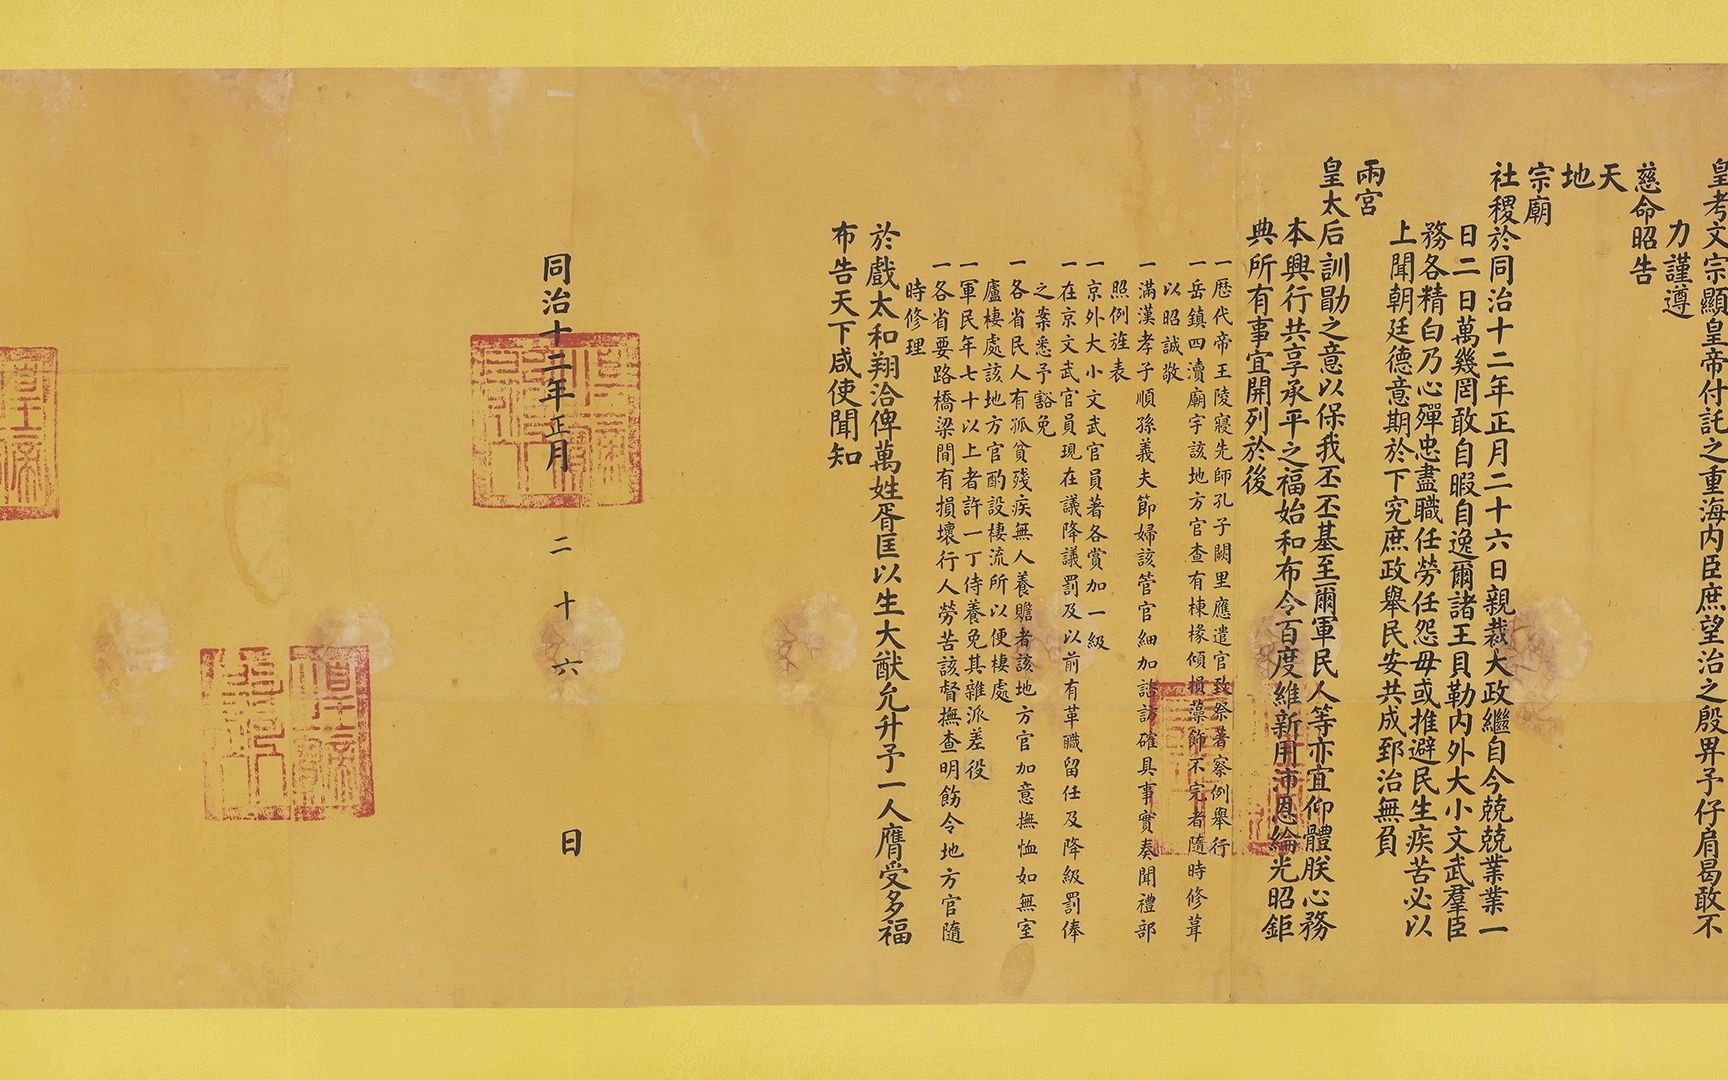 皇考文宗顯皇帝付託之重海内臣庶望治之殷畀予仔肩曷敢不
力謹遵
慈命昭告
天
地
宗廟
社稷於同治十二年正月二十六日親裁大政繼自今兢兢業業一
日二日萬幾罔敢自暇自逸爾諸王貝勒内外大小文武羣臣
務各精白乃心殫忠盡職任勞任怨毋或推避民生疾苦必以
上聞朝廷德意期於下究庶政舉民安共成郅治無負
兩宮
皇太后訓勖之意以保我丕丕基至爾軍民人等亦宜仰體朕心務
本興行共享承平之福始和布令百度維新用沛恩綸光昭鉅
典所有事宜開列於後
一歷代帝王陵寢先師孔子闕里應遣官致祭著察例舉行
一岳鎮四瀆廟宇該地方官查有棟椽傾損藻飾不完者隨時修葺
以昭誠敬
一滿漢孝子順孫義夫節婦該管官細加諮訪確具事實奏聞禮部
照例旌表
一京外大小文武官員著各賞加一級
一在京文武官員現在議降議罰及以前有革職留任及降級罰俸
之案悉予豁免
一各省民人有孤貧殘疾無人養贍者該地方官加意撫恤如無室
廬棲處該地方官酌設棲流所以便棲處
一軍民年七十以上者許一丁侍養免其雜派差役
一各省要路橋梁間有損壞行人勞苦該督撫查明飭令地方官隨
時修理
於戲太和翔洽俾萬姓胥匡以生大猷允升予一人膺受多福
布告天下咸使聞知
同治十二年正月二十六日
皇帝
之寶